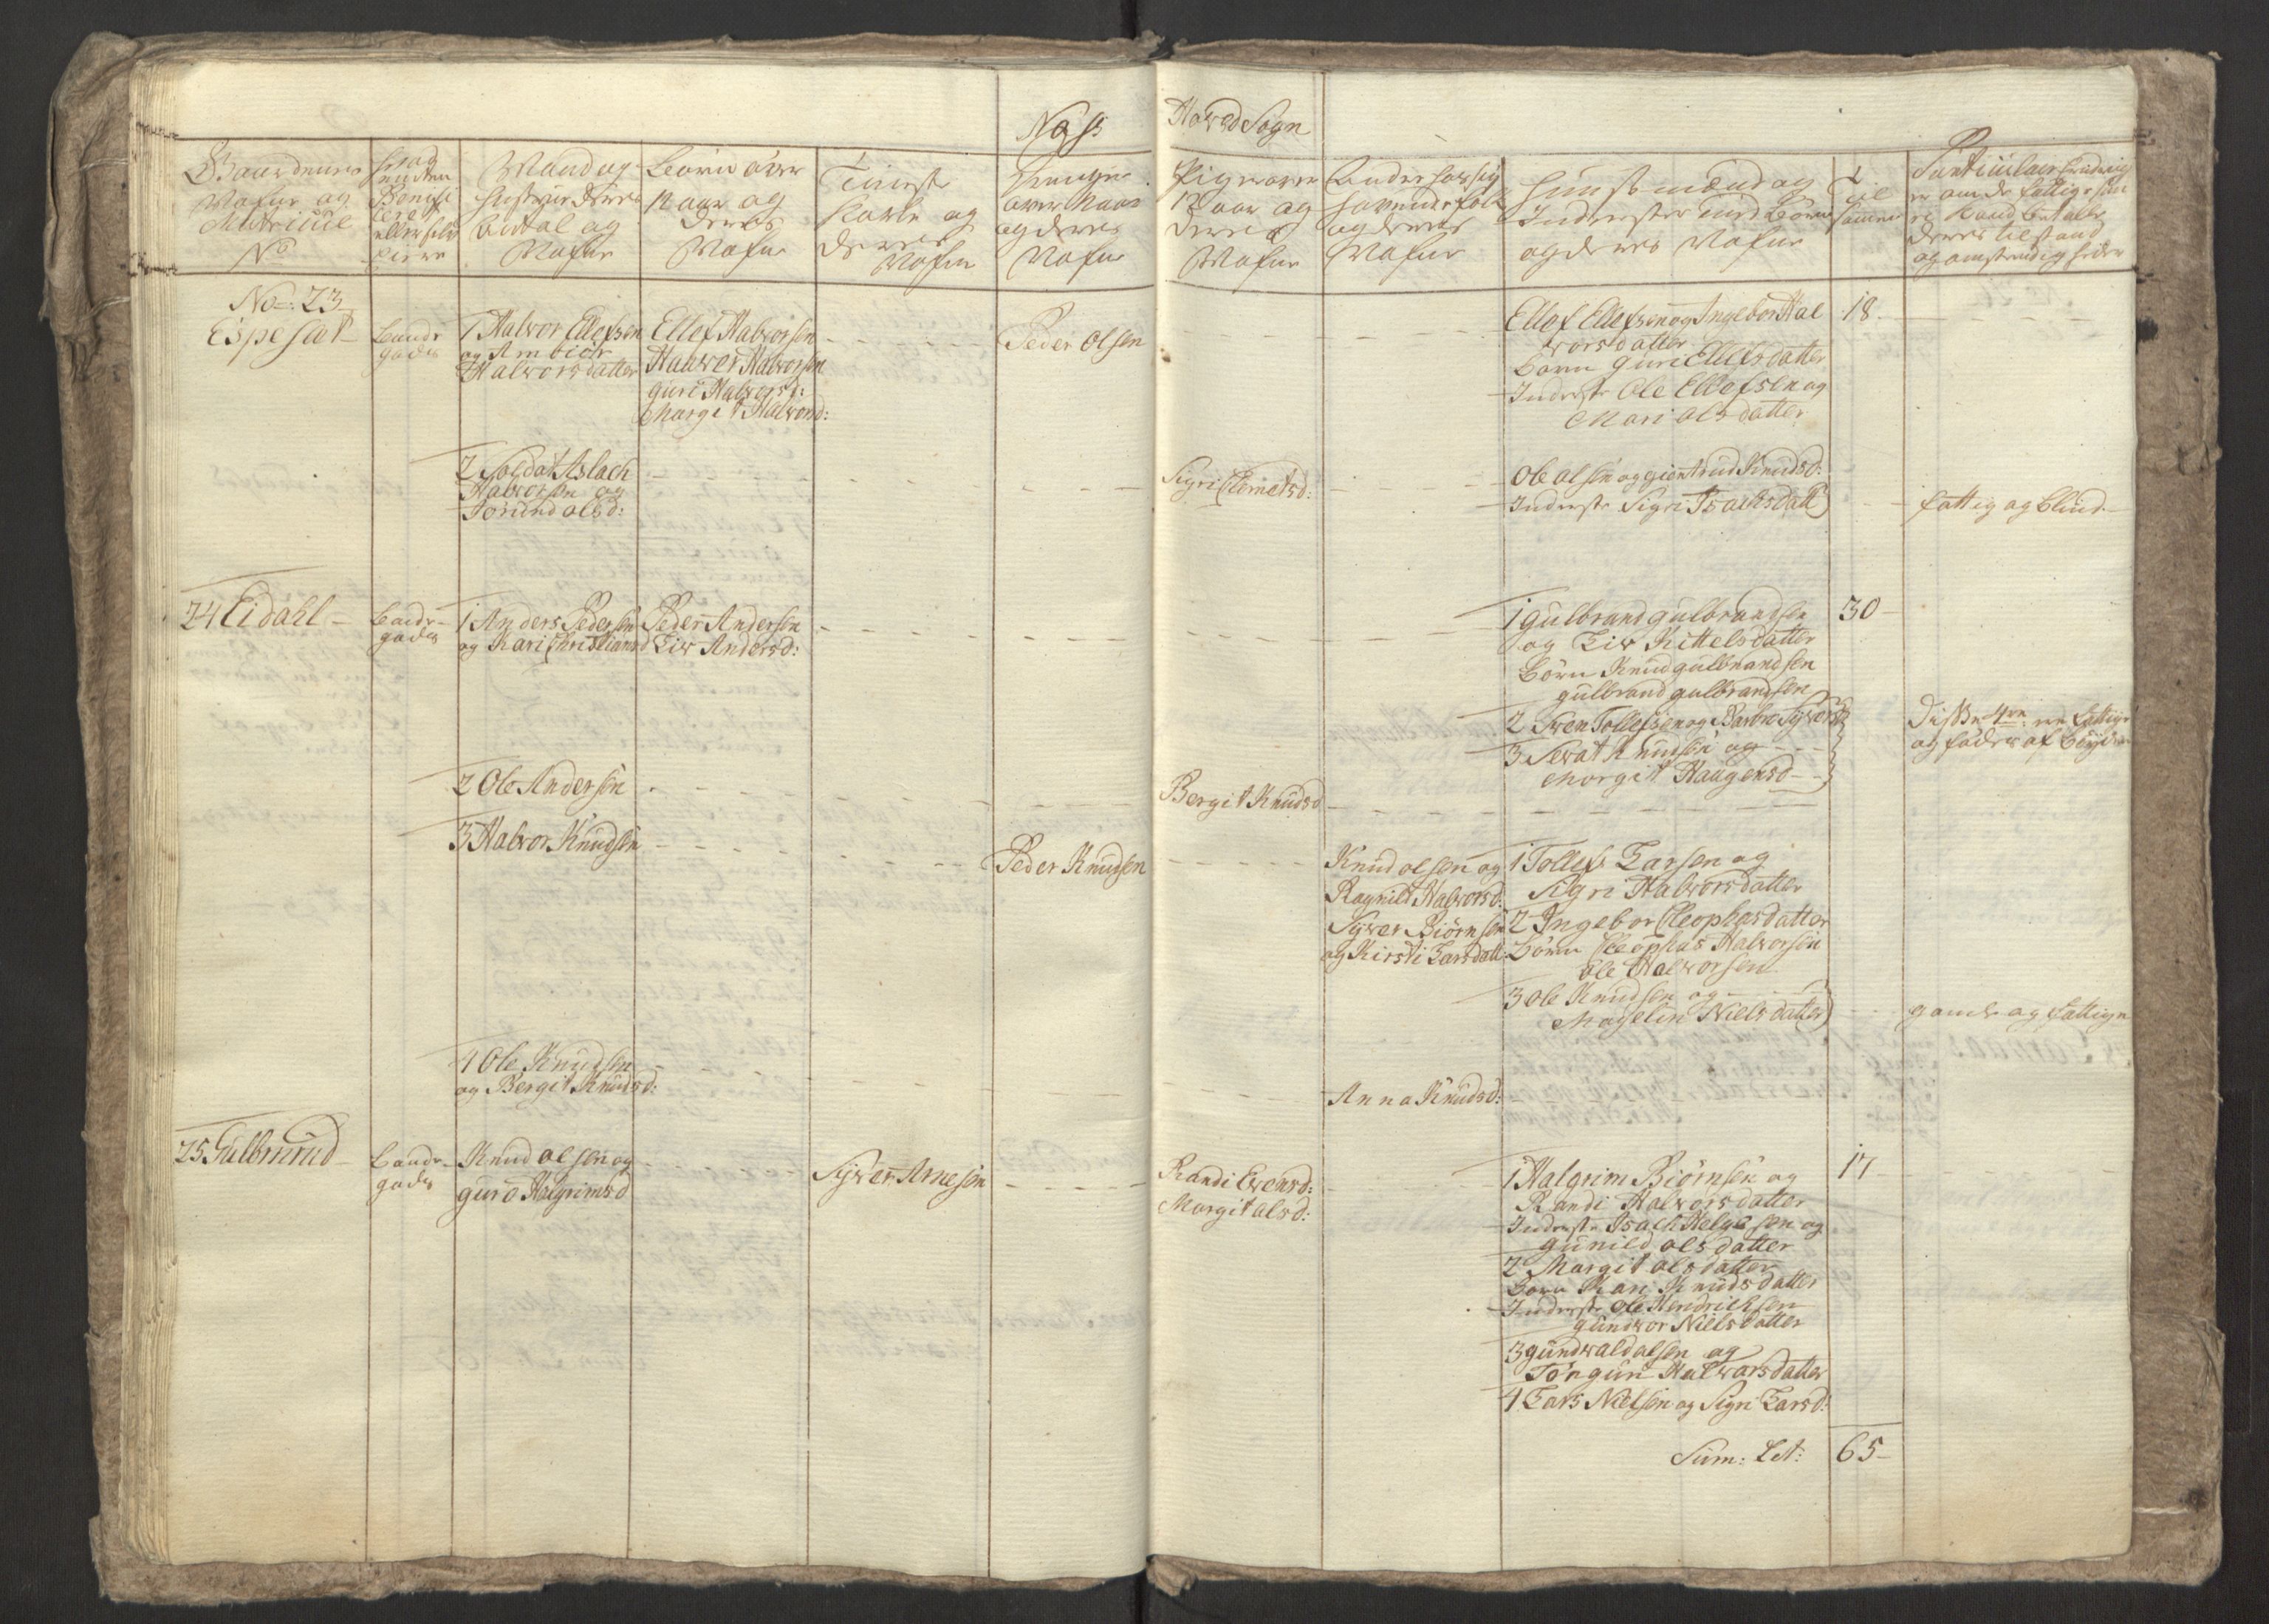 Næs
Hoved Sogn
Gaardenes
Nafne og
Matricul
No
Mand og
Hustrue deres
Antal og
Nafne
Børn over
12 aar og
deres
Nafne
Tieniste
Karle og
deres
Nafne
Drenge
over 12 aar
og deres
Nafne
Piger over
12 aar og
deres
Nafne
og deres
Nafne
Huusmænd og
Inderster med Børn
og deres Nafne
Til
sammen
er om de fattige
deres tilstand
og omstændigheder
No: 23
Espeset
Bunde
gods
1 Halvor Ellefsen
og Ambior
Halvorsdatter
Ellef Halvorsen
Haawer Halvorsen
Guri Halvorsd:
Margit Halvorsd:
Peder Olsen
Ellef Ellefsen og Ingebor Hal
vorsdatter
Børn Guri Ellefsdatter
Inderste Ole Ellefsen og
Mari Olsdatter
18
2 Soldat Aslach
Halvorsen og
Jorund Olsd:
Sigri Clemetsd:
Ole Olsen og Giertrud Knudsd:
Inderste Sigri Isachsdatt
fattig og blind
24 Eidahl
Bonde
gods
1 Anders Pedersen
og Kari Christiansd
Peder Andersen
Liv Andersd:
1 Gulbrand Gulbrandsen
og Liv Kittelsdatter
Børn Knud Gulbrandsen
Gulbrand Gulbrandsen
2 Sven Tollefsen og Barbro Syversd
3 Sevat Knudsen og
Margit Haagensd
30
Disse 4re ere fattige
og fødes af Bygden
2 Ole Andersen
Bergit Knudsd
3 Halvor Knudsen
Peder Knudsen
Knud Olsen og
Ragnild Halvorsd:
Syver Biørnsen
og Kirsti Larsdatt:
1 Tollef Larsen og
Sigri Halvorsdatter
2 Ingebor Cleophasdatter
Børn Cleophas Halvorsen
Ole Halvorsen
3 Ole Knudsen og
Magelin Nielsdatter
gamle og fattige
4 Ole Knudsen
og Bergit Knudsd:
Anna Knudsd:
25 Gulbrnrud
Bonde
gods
Knud Olsen og
Guro Halgrimsd
Syver Arnesen
Randi Evensd:
Margit Olsd:
1 Halgrim Biørnsen og
Randi Halvorsdatter
Inderste Isach Helgesen og
Gunild Olsdatter
2 Margit Olsdatter
Børn Kari Knudsdatter
Inderste Ole Hendrichsen
Gundvor Nielsdatter
3 Gundvald Olsen og
Tørgun Halvorsdatter
4 Lars Nielsen og Sigri Larsd:
17
Sum: Let:
65